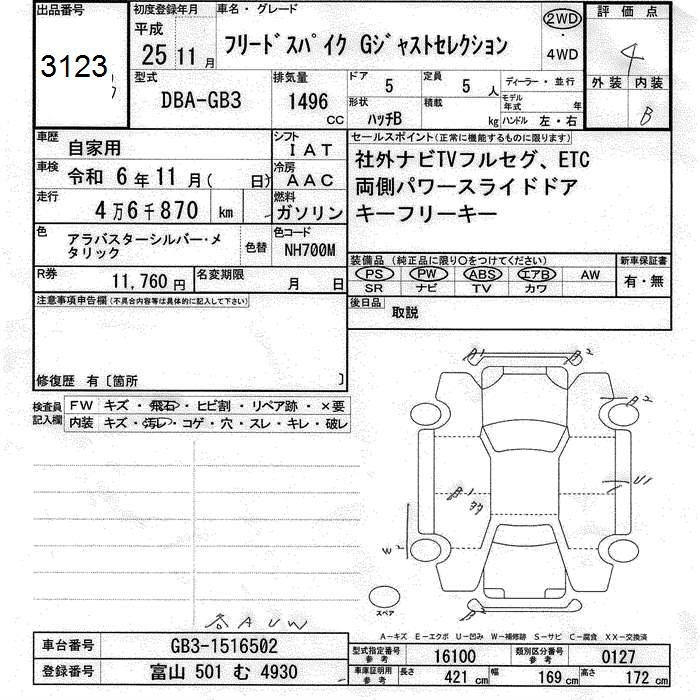 出品番号
3123
初度登録年月
平成
25 11月
車名・グレード
フリードスパイク Gジャストセレクション
2WD
・
4WD
評価点
4
外装 内装
B
型式
DBA-GB3
排気量
1496
CC
ドア
5
定員
5 人
ディーラー・並行
形状
ハッチB
積載
kg
モデル年式
年
ハンドル 左・右
車歴
自家用
シフト
IAT
車検
令和 6年11月( 日)
冷房
AAC
走行
4万6千870 km
燃料
ガソリン
色
アラバスターシルバー・メ
タリック
色替
色コード
NH700M
R券
11,760円
名変期限
月 日
セールスポイント(正常に機能するものに限ります)
社外ナビTVフルセグ、ETC
両側パワースライドドア
キーフリーキー
装備品(純正品に限り○をつけてください)
PS PW ABS エアB AW
SR ナビ TV カワ
新車保証書
有・無
後日品
取説
注意事項申告欄(不具合内容等は具体的に記入して下さい)
修復歴 有〔箇所 〕
検査員
記入欄
FW キズ・飛石・ヒビ割・リペア跡・×要
内装 キズ・汚レ・コゲ・穴・スレ・キレ・破レ
A1
A2
A2
U1
B1
W2
B2
スペア
AUW
A-キズ E-エクボ U-凹み W-補修跡 S-サビ C-腐食 XX-交換済
車台番号
GB3-1516502
登録番号
富山 501 む 4930
型式指定番号
参考
16100
類別区分番号
参考
0127
車庫証明用
参考
長さ
421 cm
幅
169 cm
高さ
172 cm